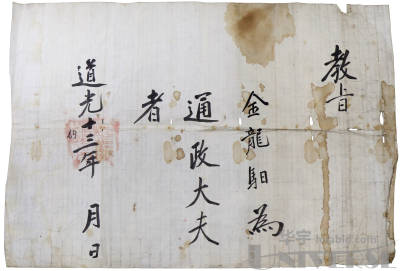 教旨
金龍 為
通政大夫
者
道光十三年 月 日
华宇
UNIVERSE